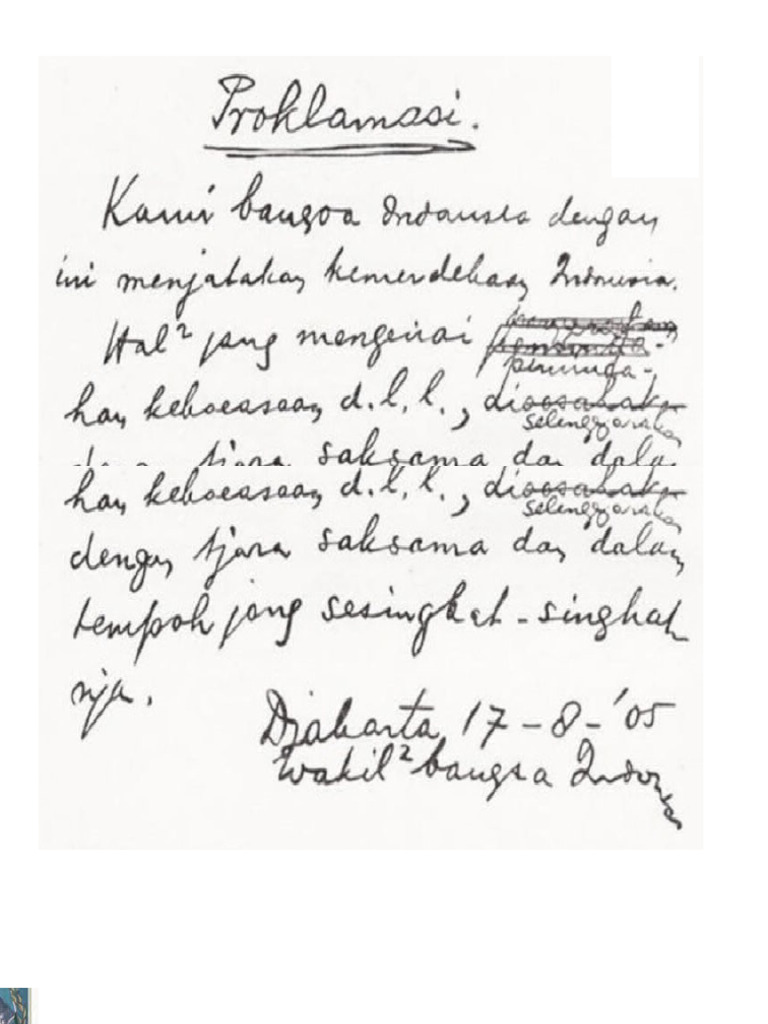 Proklamasi.
Kami bangsa Indonesia dengan
ini menjatakan kemerdekaan Indonesia.
Hal² jang mengenai
peminda-
han kekoeasaan d.l.l., dioesahakan
selenggarakan
tjara saksama dan dalam
han kekoeasaan d.l.l., dioesahakan
selenggarakan
dengan tjara saksama dan dalam
tempoh jang sesingkat-singkat
nja.
Djakarta, 17 - 8 - '05
Wakil² bangsa Indonesia